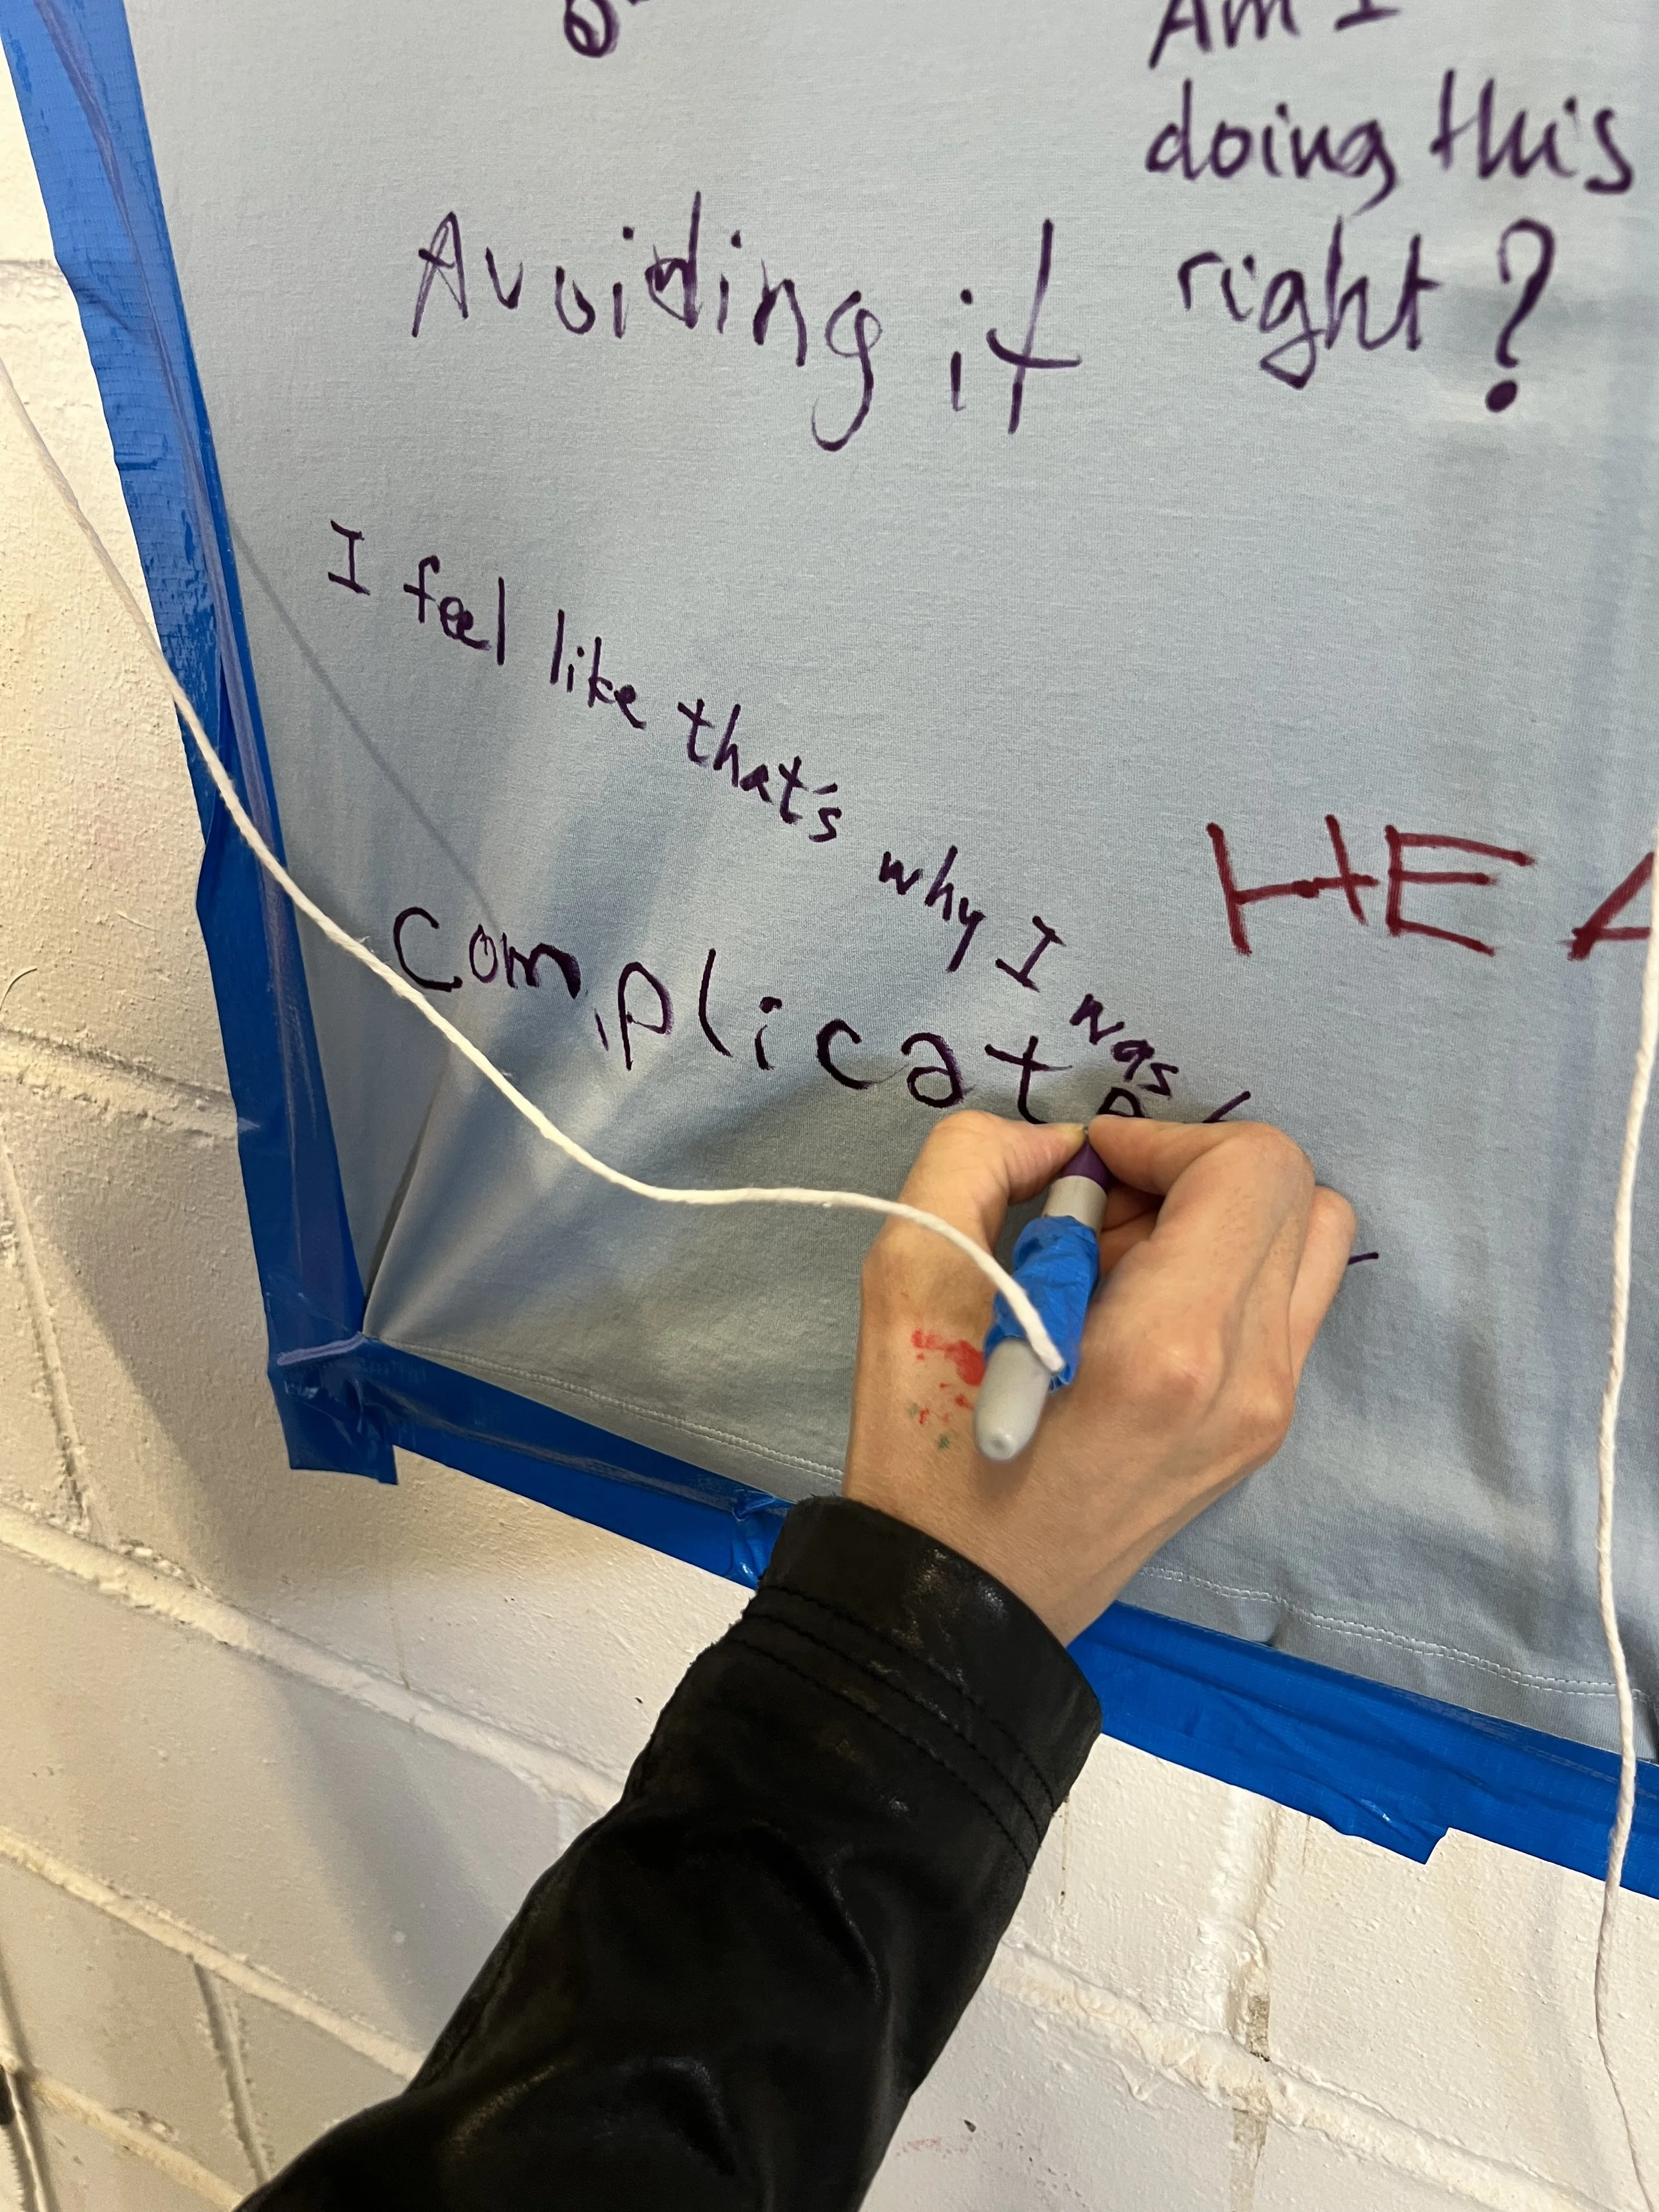 Am I
doing this
right?
Avoiding it
I feel like that's why I was
HEA
complicate